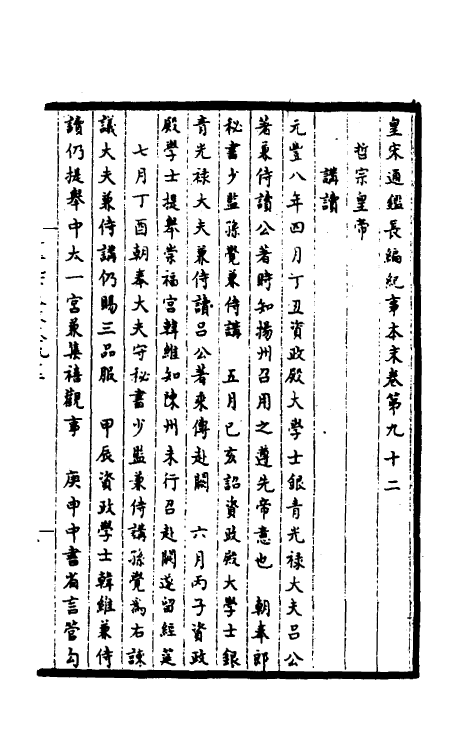 皇宋通鑑長編紀事本末卷第九十二
哲宗皇帝
講讀
元豐八年四月丁丑資政殿大學士銀青光祿大夫呂公
著兼侍讀公著時知揚州召用之遵先帝意也　朝奉郎
秘書少監孫覺兼侍講　五月己亥詔資政殿大學士銀
青光祿大夫兼侍讀呂公著乘傳赴闕　六月丙子資政
殿學士提舉崇福宮韓維知陳州未行召赴闕遂留經筵
七月丁酉朝奉大夫守秘書少監兼侍講孫覺為右諫
議大夫兼侍講仍賜三品服　甲辰資政學士韓維兼侍
讀仍提舉中太一宮兼集禧觀事　庚申中書省言管勾